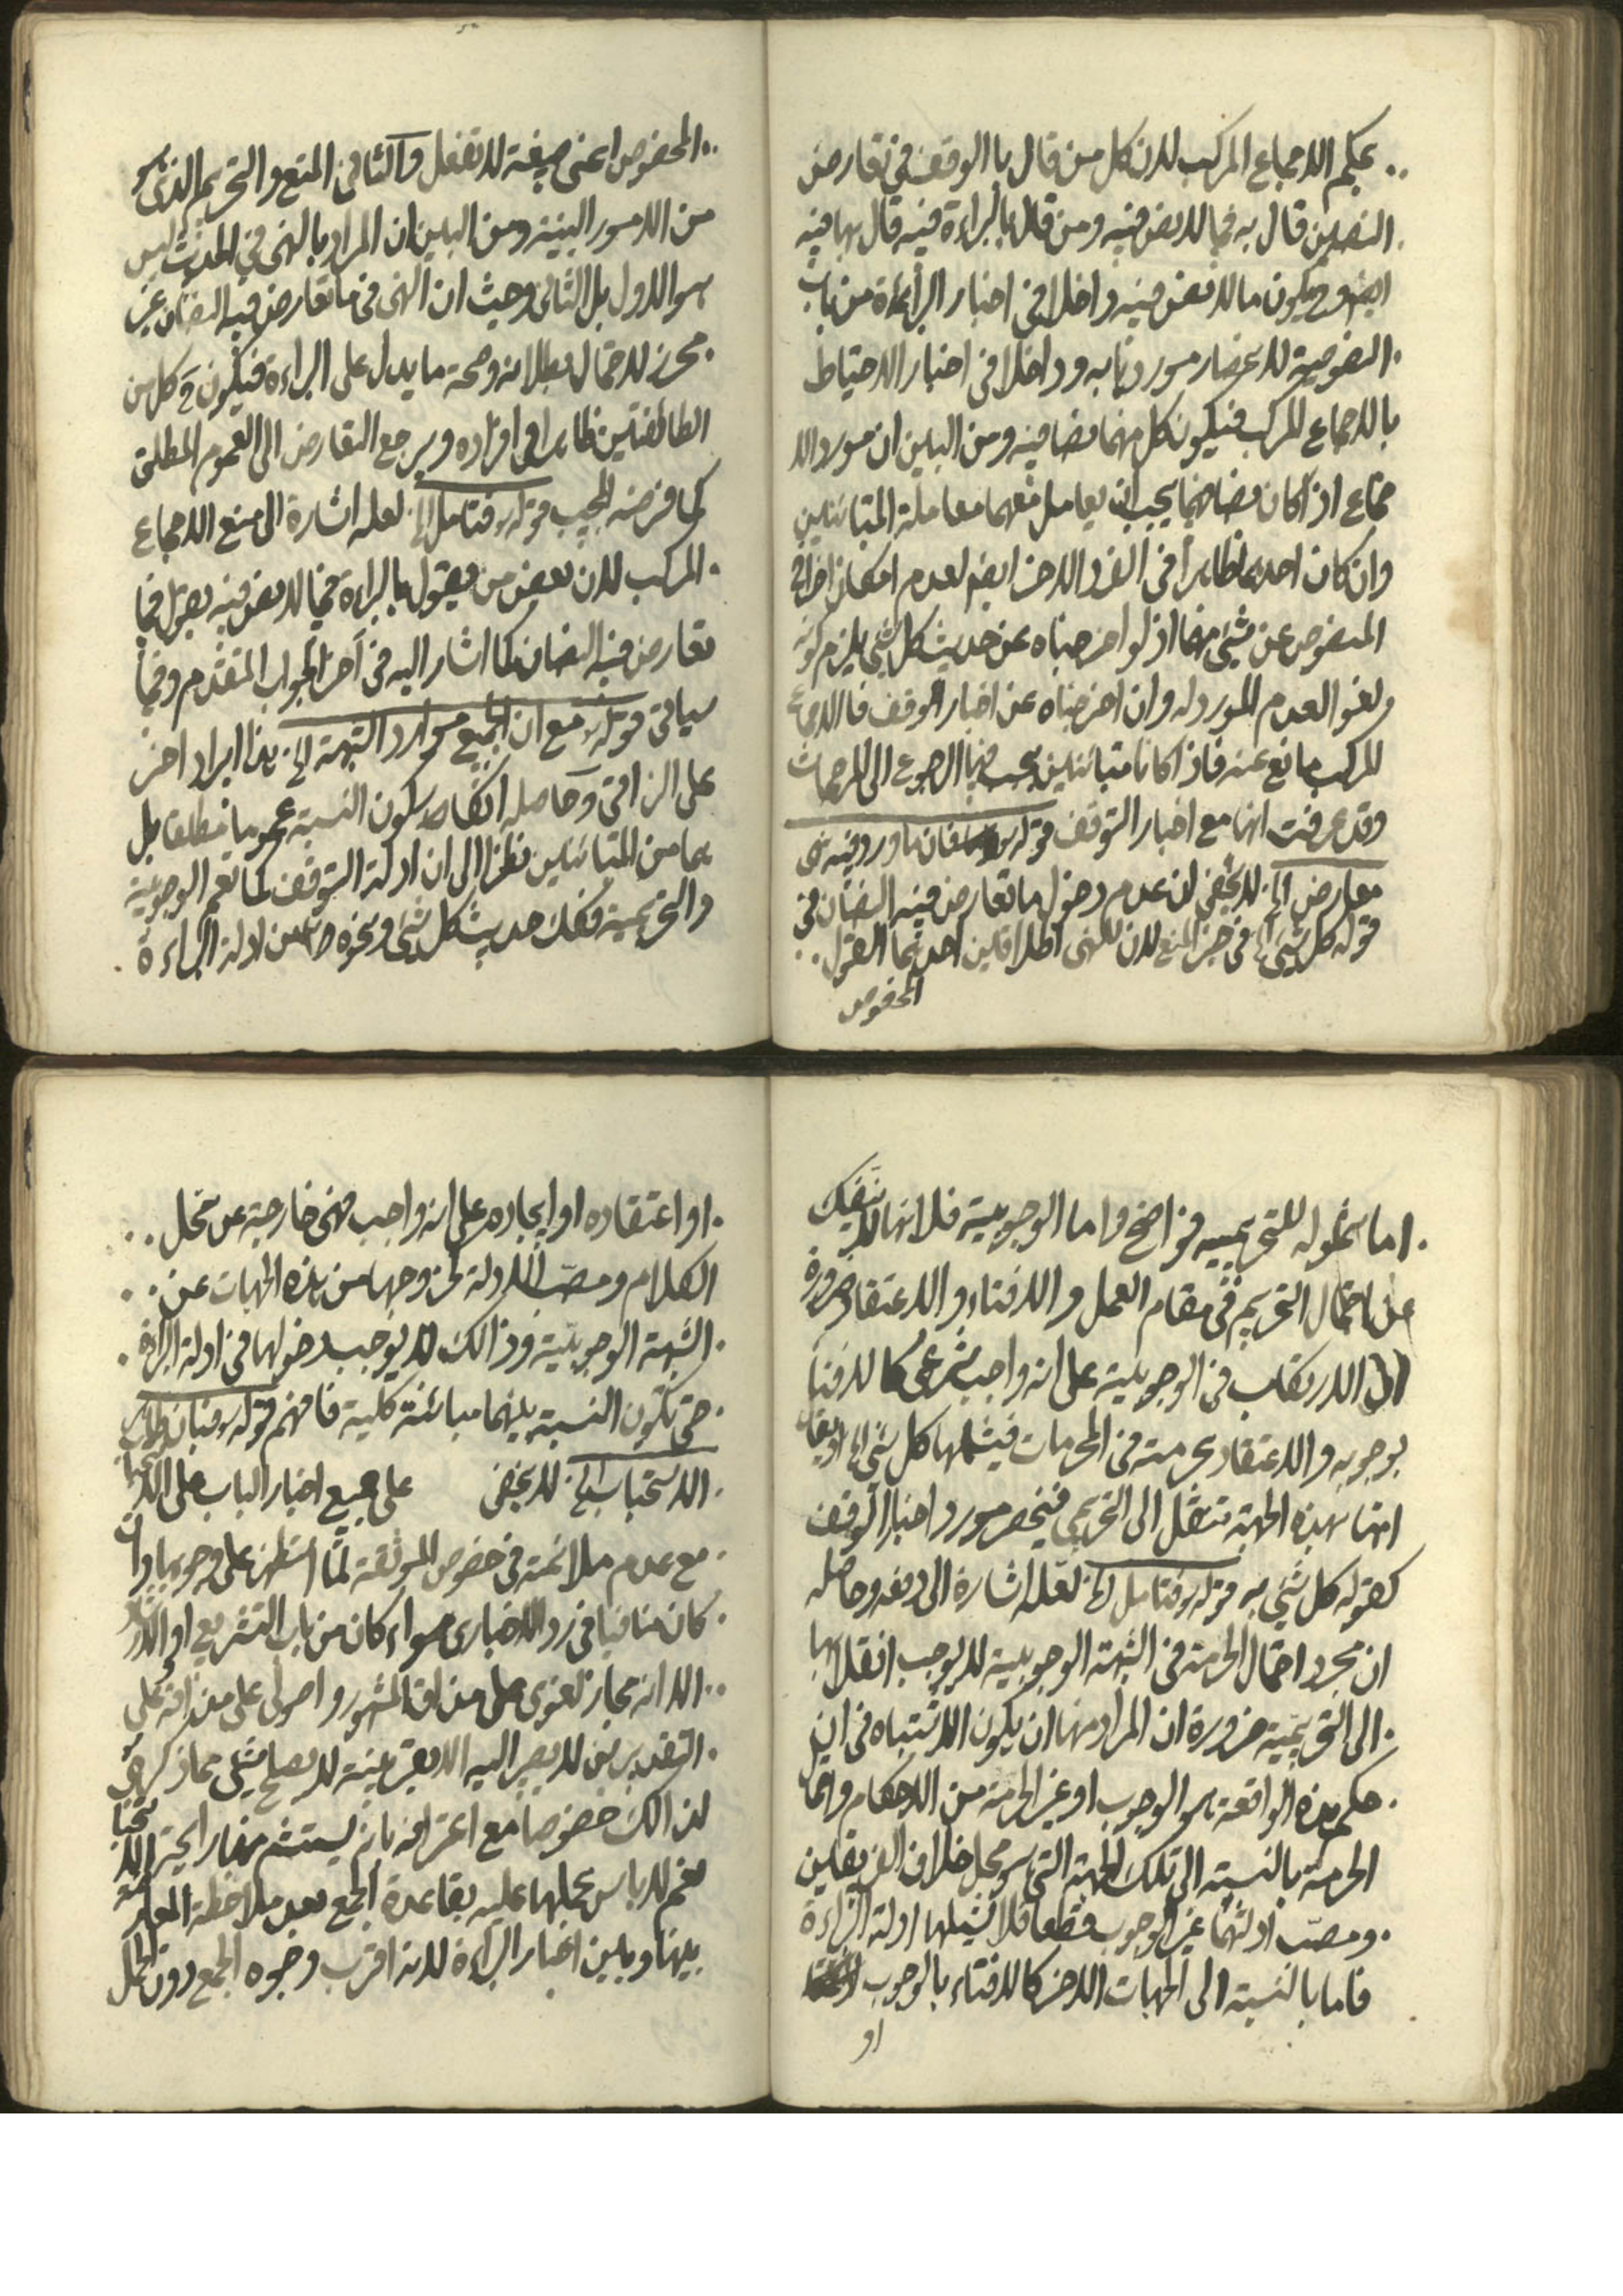 بحكم الاجماع المركب لان كل من قال بالوقف في تعارض
النصين قال به فيما لا نص فيه ومن قال بالبراءة فيه قال بها فيه
ايضا وح يكون ما لا نص فيه داخلا في اخبار البراءة من باب
النصوصية لانحصار موردها به وداخلا في اخبار الاحتياط
بالاجماع المركب فيكون كل منهما نصا فيه ومن البين ان مورد الا
جماع اذا كان نصا فيهما يجب ان يعامل معهما معاملة المتباينين
وان كان احدهما ظاهرا في الفرد الاخر ايضا لعدم امكان اخراج
المنصوص عن شيئ منهما اذ لو اخرجناه عن حديث كل شيئ يلزم كونه
لغوا لعدم المورد له وان اخرجناه عن اخبار الوقف فالاجماع
المركب مانع عنه فاذا كانا متباينين يجب فيها الرجوع الى المرجحات
وقد عرفت انها مع اخبار التوقف قوله ره فان ما ورد فيه نهى
معارض الخ لا يخفى ان عدم دخول ما تعارض فيه النصان في
قوله كل شيئ الخ في حيز المنع لان للنهى اطلاقين احدهما القول
المخصوص
المخصوص اعنى صيغة لا تفعل والثانى المنع والتحريم الذى هو
من الامور البينة ومن البين ان المراد بالنهى في الحديث ليس
هو الاول بل الثانى وحيث ان النهى في ما تعارض فيه النصان غير
محرز لاحتمال بطلانه وصحة ما يدل على البراءة فيكون ح كل من
الطائفتين ظاهرا في افراده ويرجع التعارض الى العموم المطلق
كما فرضه المجيب قوله ره فتامل الخ لعله اشارة الى منع الاجماع
المركب لان بعض من يقول بالبراءة فيما لا نص فيه يقول فيما
تعارض فيه النصان كما اشار اليه في آخر الجواب المتقدم وفيما
سياتى قوله ره مع ان جميع موارد الشبهة الخ هذا ايراد اخر
على النراقى وحاصله انكار كون النسبة عموما مطلقا بل
هما من المتباينين نظرا الى ان ادلة التوقف كما تعم الوجوبية
والتحريمية فكك حديث كل شيئ ونحوه من ادلة البراءة
اما شموله للتحريمية فواضح واما الوجوبية فلانها لا تنفك
عن احتمال التحريم في مقام العمل والافتاء والاعتقاد ضرورة
ان الارتكاب في الوجوبية على انه واجب شرعى كالافتاء
بوجوبه والاعتقاد بحرمته في المحرمات فيشملها كل شيئ الخ او يقال
انها بهذه الجهة تنتقل الى التحريمى فينحصر مورد اخبار الوقف
كقوله كل شيئ به قوله ره فتامل الخ لعله اشارة الى دفعه وحاصله
ان مجرد احتمال الحرمة في الشبهة الوجوبية لا يوجب انقلابها
الى التحريمية ضرورة ان المراد منها ان يكون الاشتباه في ان
حكم هذه الواقعة هو الوجوب او غير الحرمة من الاحكام واما
الحرمة بالنسبة الى تلك الجهة التى هو محل خلاف الفريقين
ومصب ادلتهما غير الوجوب قطعا فلا يشملها ادلة البراءة
فاما بالنسبة الى الجهات الاخر كالافتاء بالوجوب
او
او اعتقاده او ايجاده على انه واجب فهى خارجة عن محل
الكلام ومصب الادلة لخروجها من هذه الجهات عن
الشبهة الوجوبية وذالك لا يوجب دخولها في ادلة البراءة
حتى تكون النسبة بينهما مباينة كلية فافهم قوله ره فبان ظاهر
الاستحباب الخ لا يخفى على جميع اخبار الباب على الاستحباب
مع عدم ملائمة في خصوص الموثقة لما استظهر على وجوبها وان
كان منافيا في رد الاخبارى سواء كان من باب التشريع او الارشاد
الا انه مجاز لغوى على مذاق المشهور واصولى على مذاقه على
التقديرين لا يصير اليه الا بقرينة لا يصلح شيئ مما ذكره في
لذالك خصوصا مع اعترافه بانه يستشم منها رايحة الاستحباب
نعم لا باس بحملها عليه بقاعدة الجمع بعد ملاحظة المعارضة
بينها وبين اخبار البراءة لانه اقرب وجوه الجمع دون الحمل